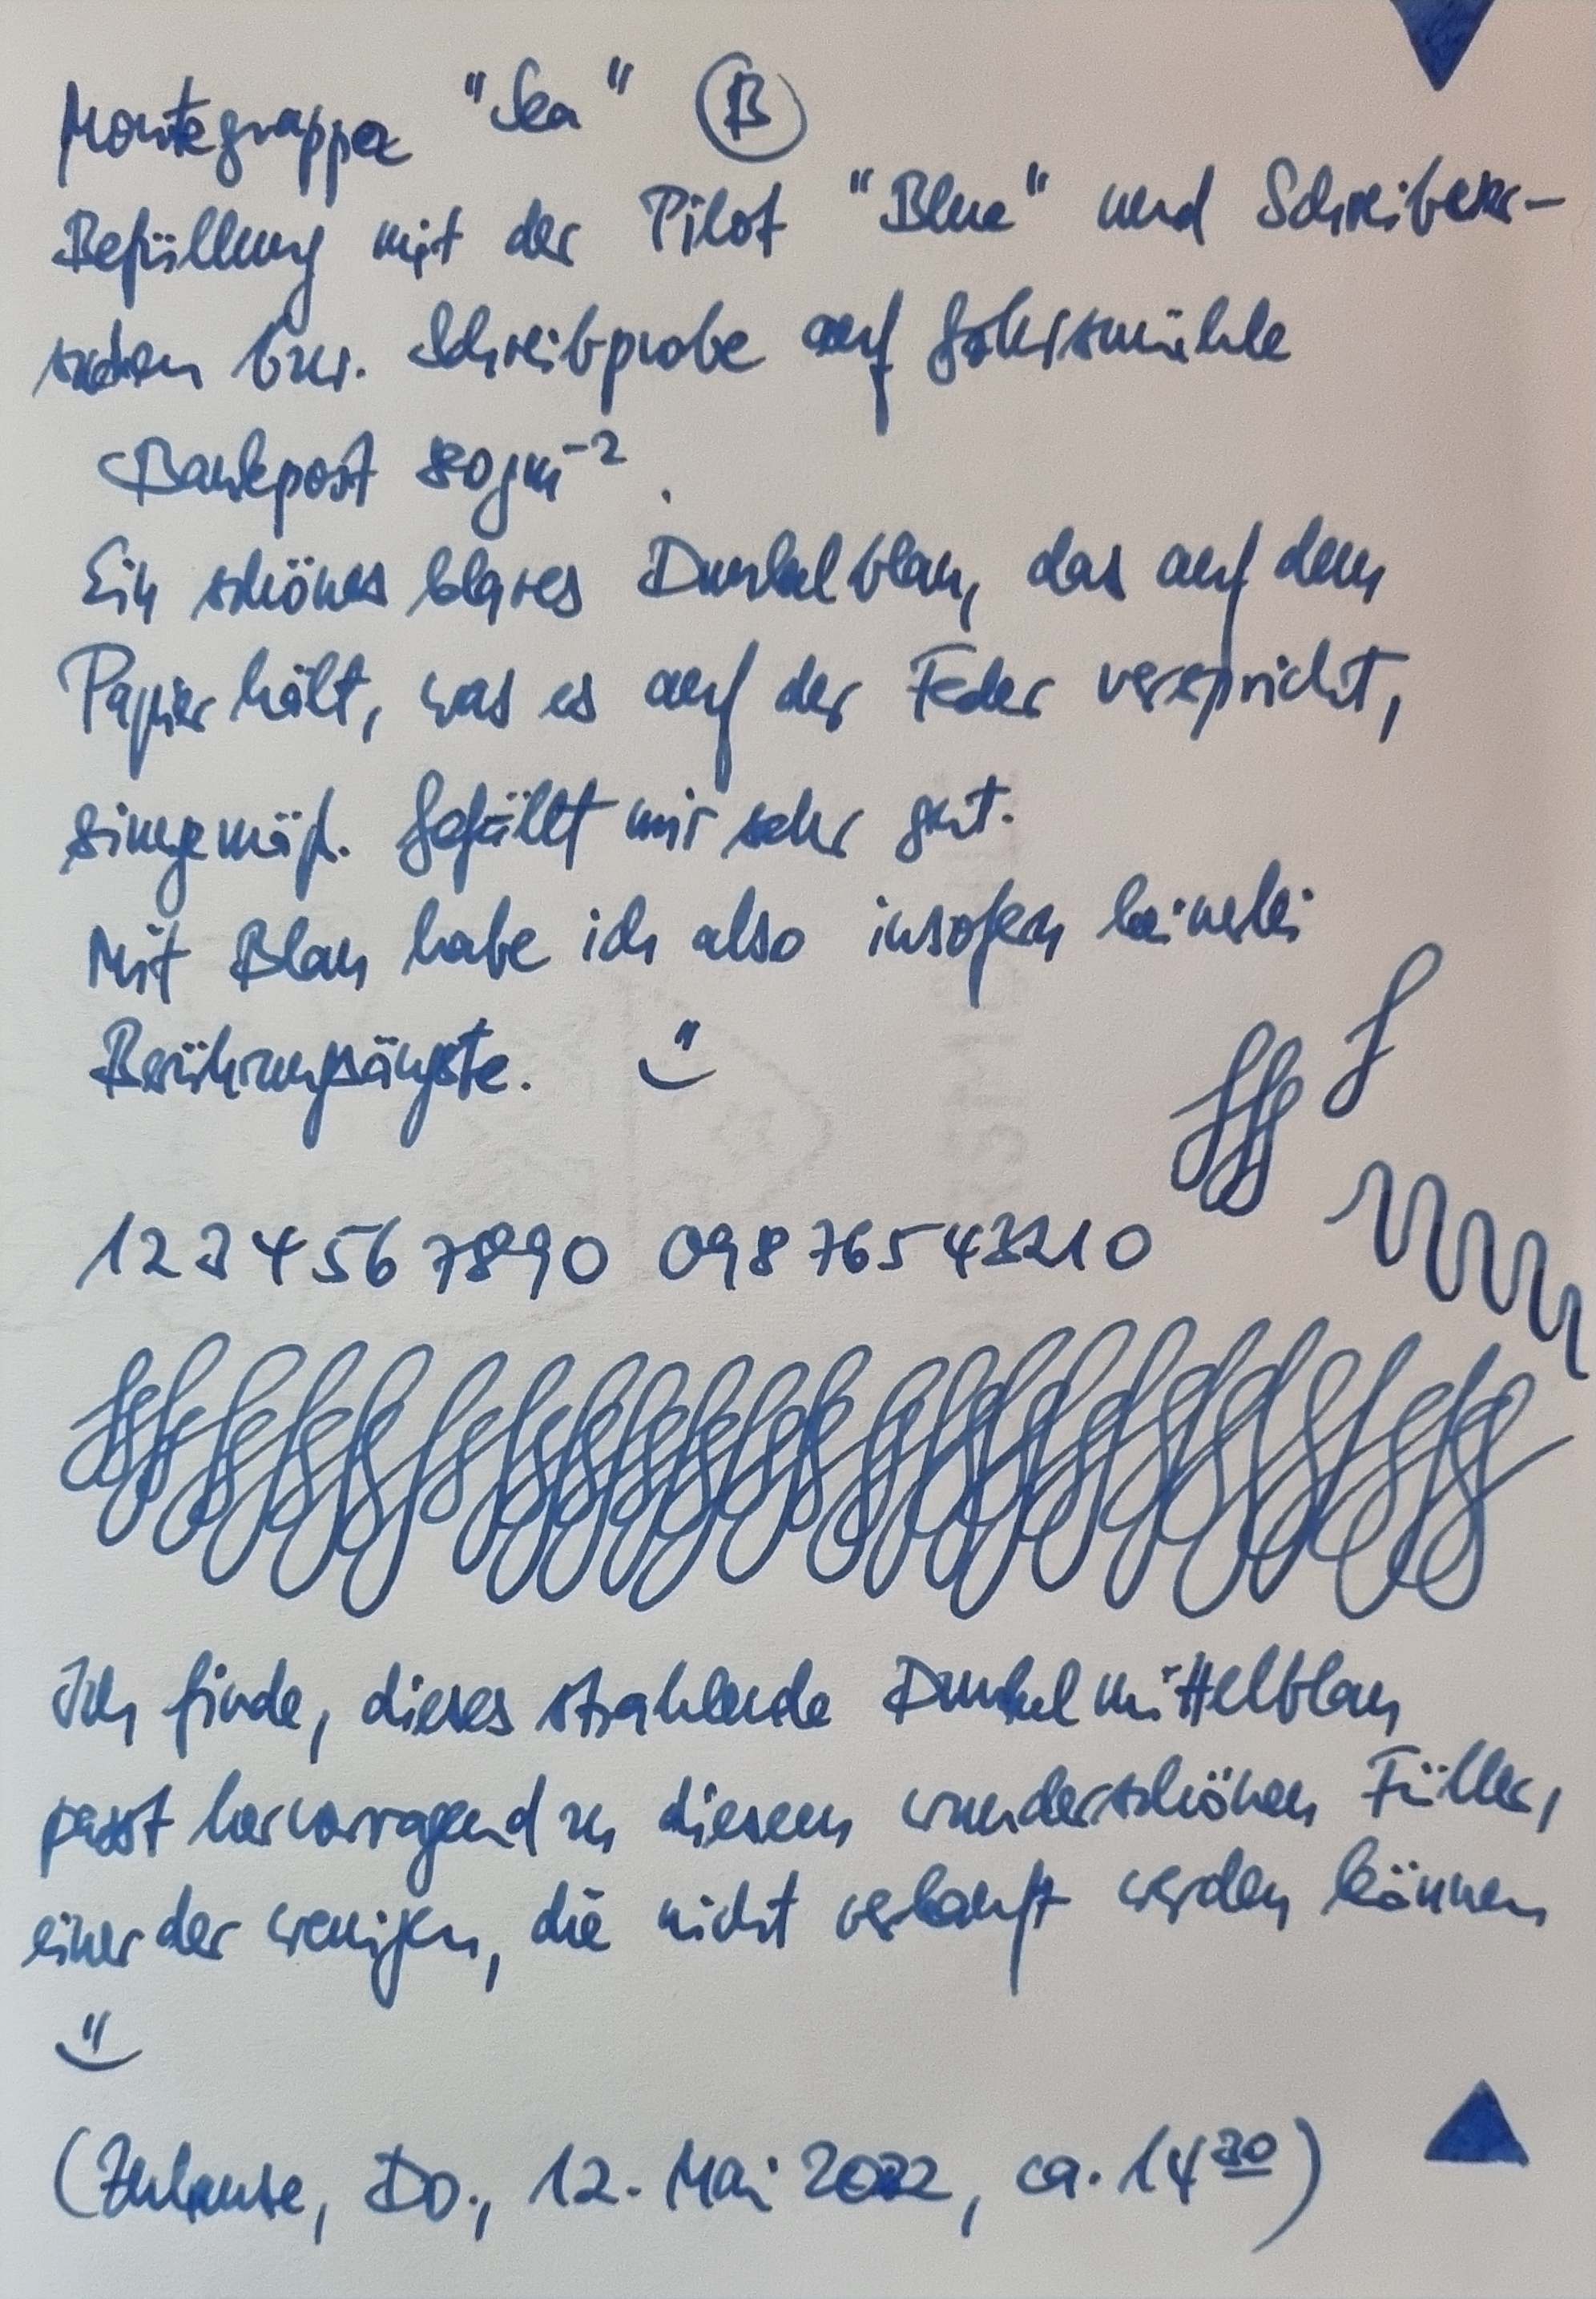 Montegrappa "Sea" B
Befüllung mit der Pilot "Blue" und Schreiberer-
suchen bzw. Schreibprobe auf Gohrsmühle
Bankpost 80gm⁻²
Ein schönes klares Dunkelblau, das auf dem
Papier hält, was es auf der Feder verspricht,
sinngemäß. Gefällt mir sehr gut.
Mit Blau habe ich also insofern keinerlei
Berührungsängste.
1234567890 09876543210
Ich finde, dieses strahlende Dunkelmittelblau
passt hervorragend zu diesem wunderschönen Füller,
einer der wenigen, die nicht verkauft werden können
(Zuhause, Do., 12. Mai 2022, ca. 14³⁰)